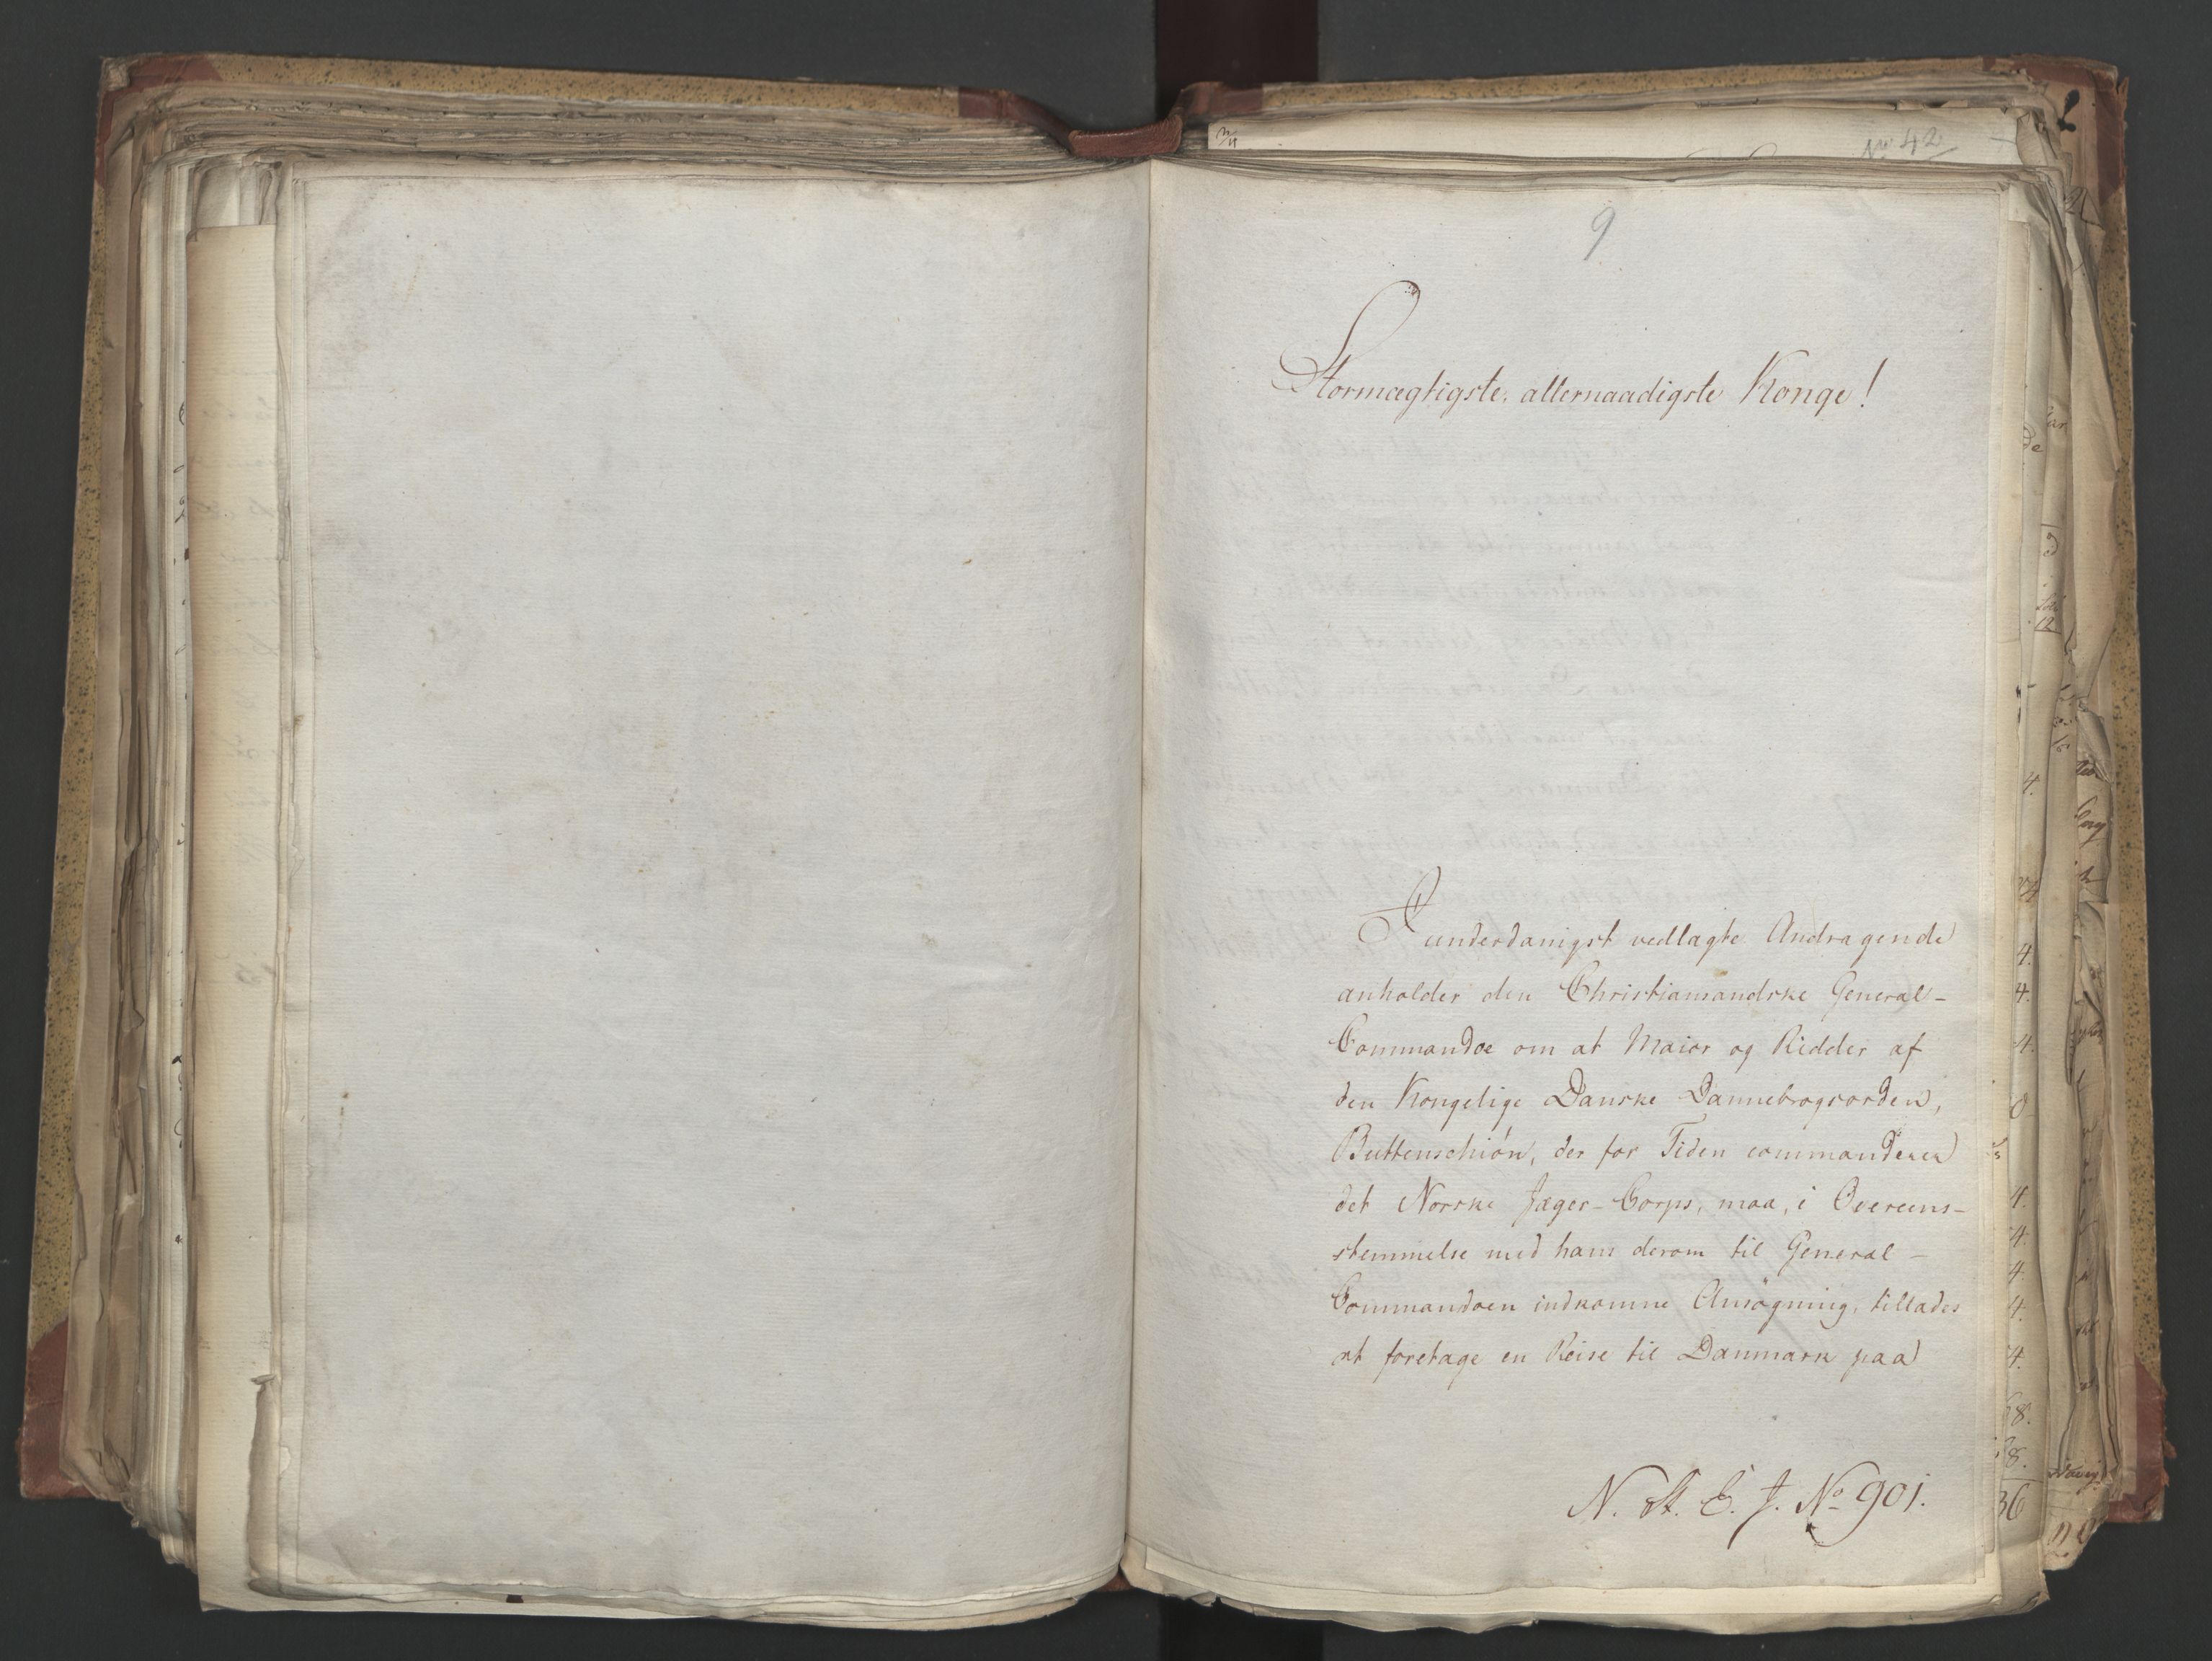 No 42
9
Stormægtigste, allernaadigste Konge!
I underdanigst vedlagte Andragende
anholder den Christiansandske General-
Commandoe om at Maior og Ridder af
den Kongelige Danske Dannebrogsorden,
Buttenschión, der for Tiden commanderer
det Norske Jæger-Corps, maa, i Overeens-
stemmelse med hans derom til General-
Commandoen indkomne Ansøgning, tillades
at foretage en Reise til Danmark paa
N. A. C. J. No 901.